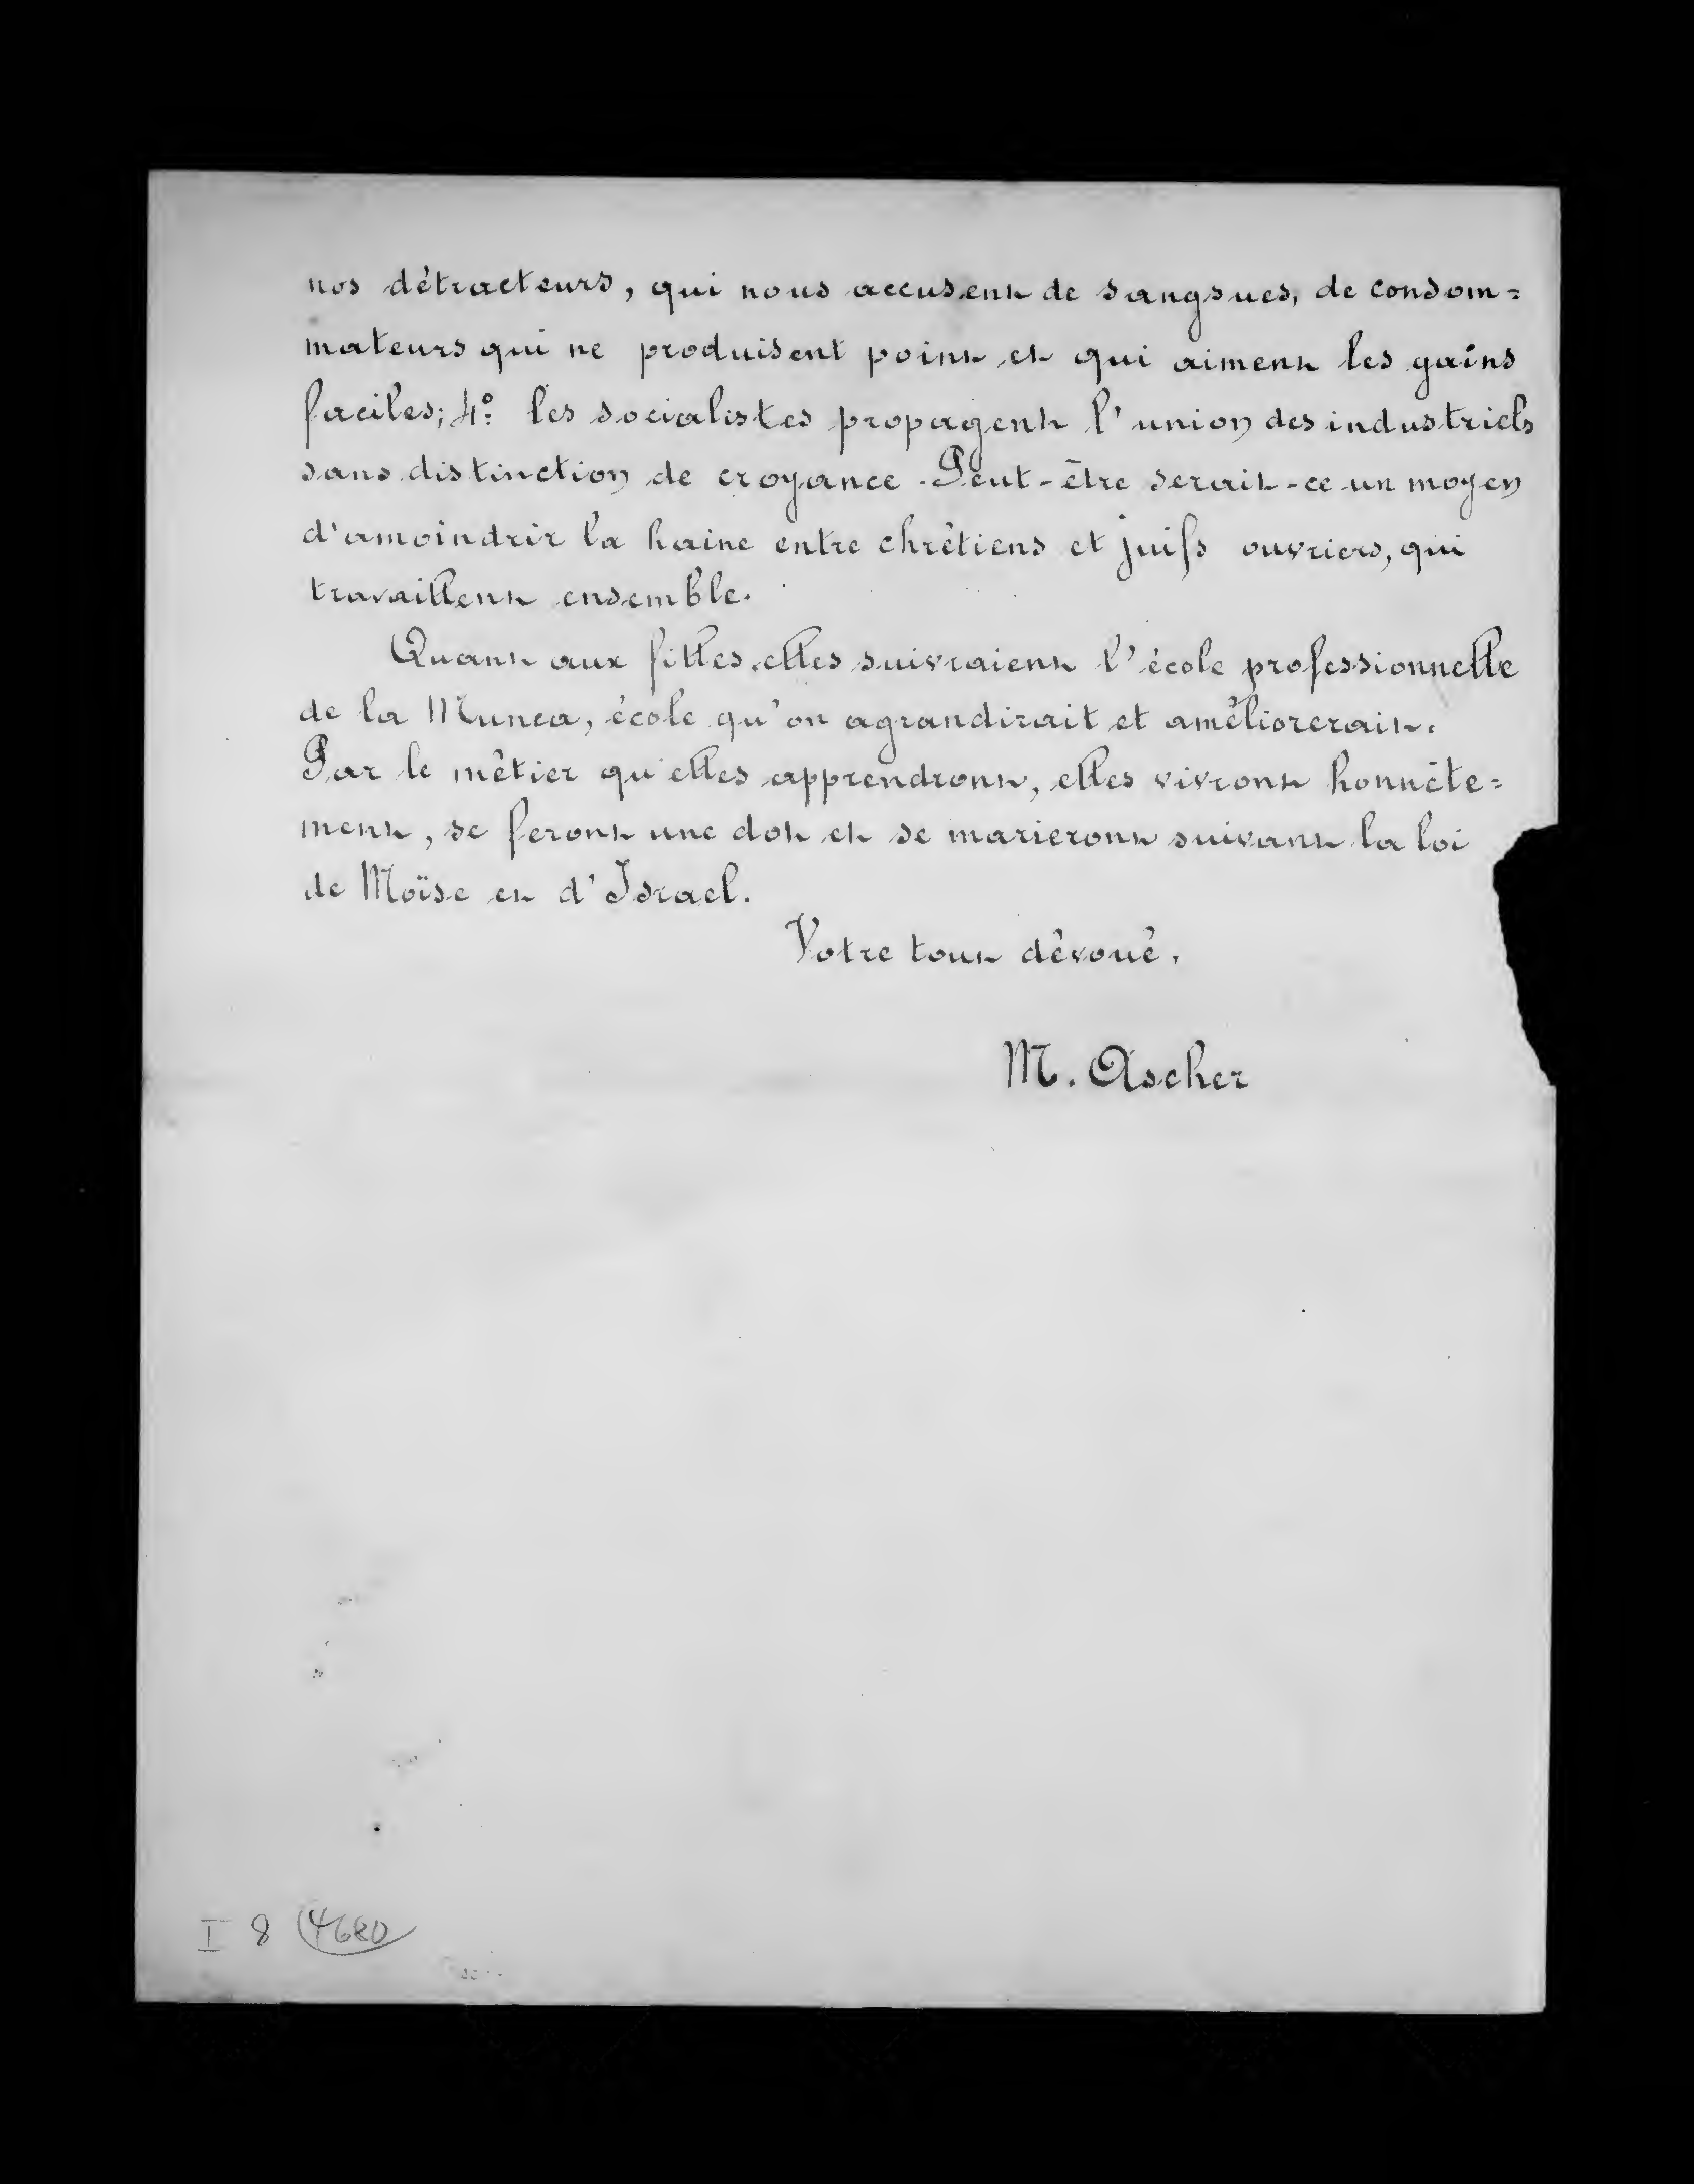 nos détracteurs, qui nous accusent de sangsues, de consom=
mateurs qui ne produisent point et qui aiment les gains
faciles; 4º les socialistes propagent l'union des industriels
sans distinction de croyance. Peut-être serait-ce un moyen
d'amoindrir la haine entre chrétiens et juifs ouvriers, qui
travaillent ensemble.
Quant aux filles, elles suivraient l'école professionnelle
de la Munca, école qu'on agrandirait et améliorerait.
Par le métier qu'elles apprendront, elles vivront honnête=
ment, se feront une dot et se marieront suivant la loi
de Moïse et d'Israel.
Votre tout dévoué,
M. Ascher
I 8 4680